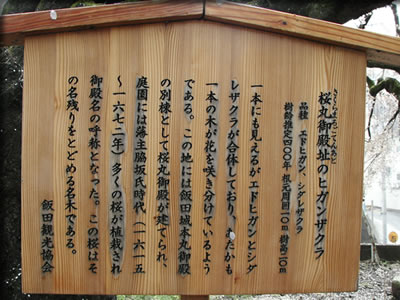 さくらまるごてんあと
桜丸御殿址のヒガンザクラ
品種 エドヒガン、シダレザクラ
樹齢推定四〇〇年 根元周囲一〇m 樹高二〇m
一本にも見えるがエドヒガンとシダ
レザクラが合体しており、あたかも
一本の木が花を咲き分けているよう
である。この地には飯田城本丸御殿
の別棟として桜丸御殿が建てられ、
庭園には藩主脇坂氏時代(一六一五
~一六七二年)多くの桜が植栽され
御殿名の呼称となった。この桜はそ
の名残りをとどめる名木である。
飯田観光協会